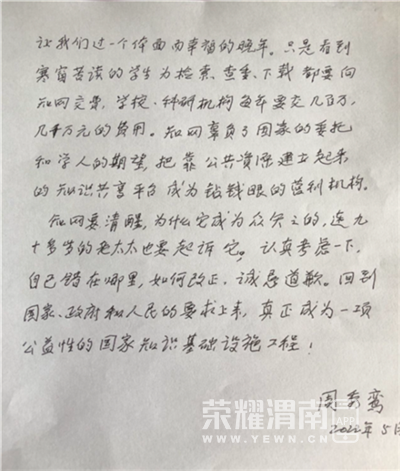 让我们过一个体面而幸福的晚年。只是看到
寒窗苦读的学生为检索、查重、下载都要向
知网交费，学校、科研机构每年要交几百万，
几千万元的费用。知网辜负了国家的委托
和学人的期望，把靠公共资源建立起来
的知识共享平台成为钻钱眼的盈利机构。
知网要清醒，为什么它成为众矢之的，连九
十多岁的老太太也要起诉它。认真考虑一下，
自己错在哪里，如何改正，诚恳道歉。回到
国家、政府和人民的要求上来，真正成为一项
公益性的国家知识基础设施工程！
周秀鸾
2022年5月
荣耀渭南网
WWW.YEWN.CN